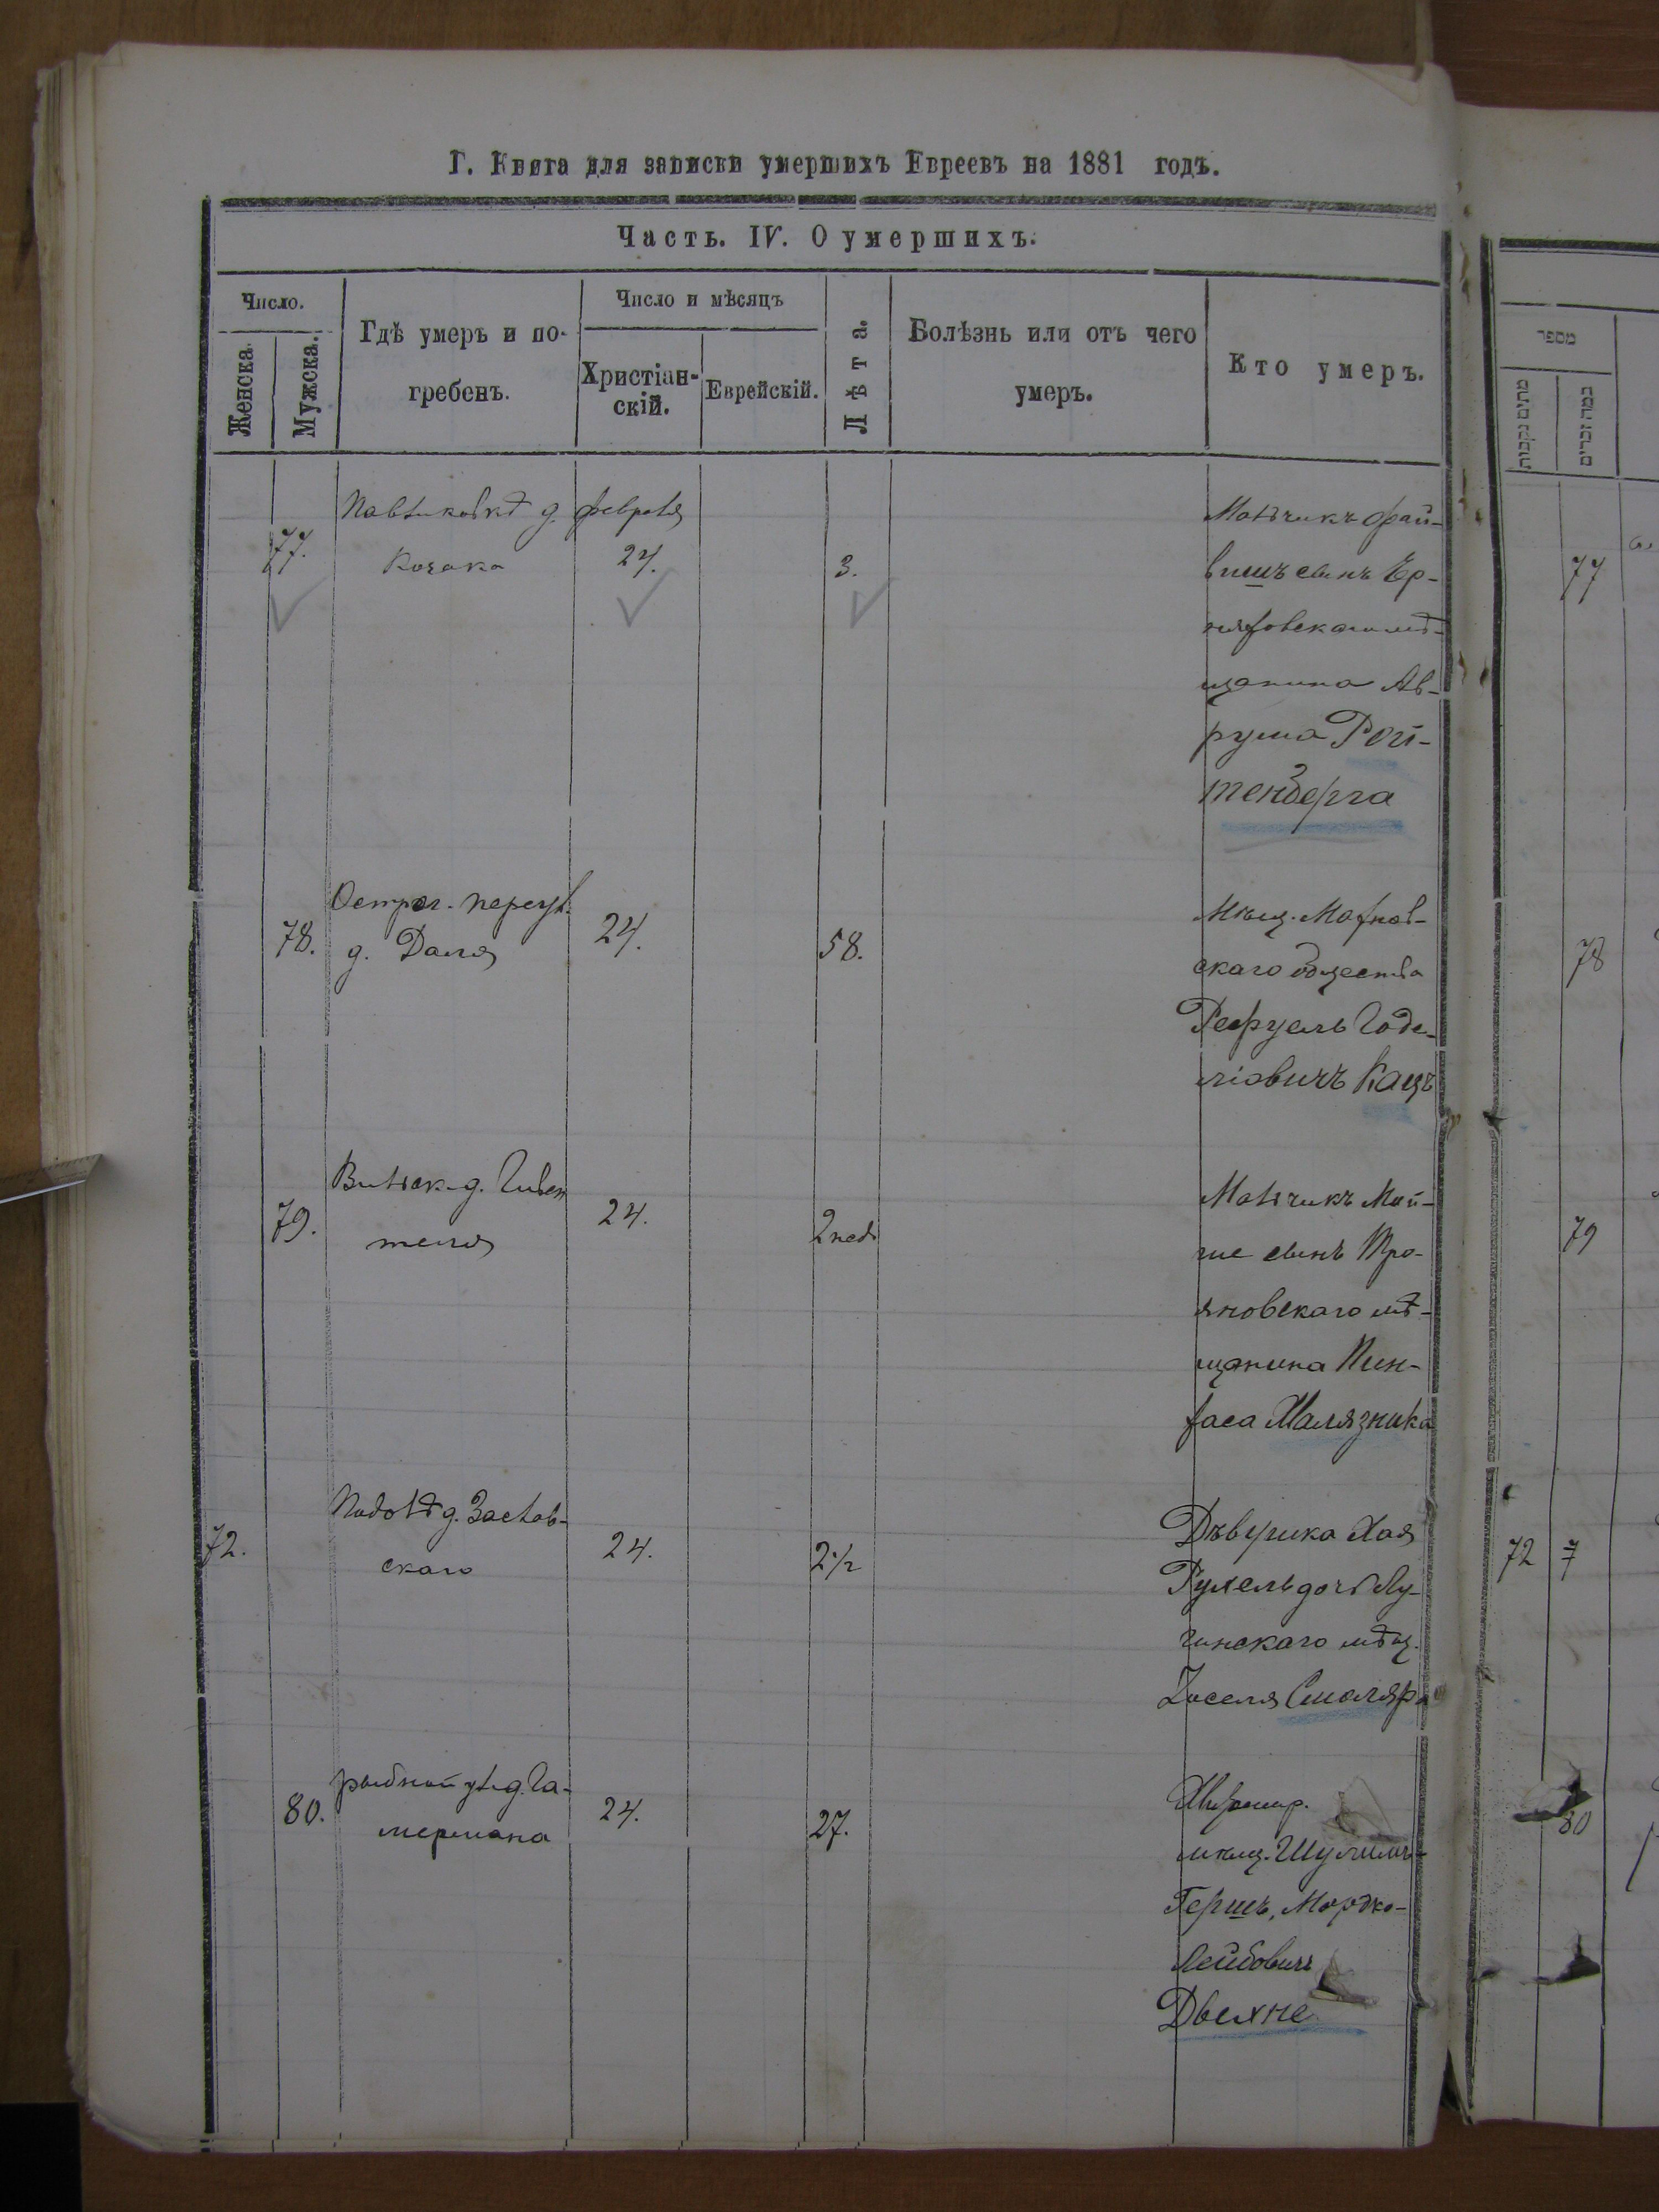 Г. Книга для записки умершихъ Евреевъ на 1881 годъ.
Часть. IV. О умершихъ.
Число.
Женска.
Мужска.
Гдѣ умеръ и по-
гребенъ.
Число и мѣсяцъ
Христіан-
скій.
Еврейскій.
Лѣта.
Болѣзнь или отъ чего
умеръ.
Кто умеръ.
77.
д.
Козака
февраля
24.
3.
Мальчикъ Фай-
вишъ сынъ
мѣ-
щанина Ав-
рума Рой-
тенберга
78.
д. Даля
24.
58.
Мѣщ.
скаго общества
Рефуель Годе-
ліовичъ Кацъ
79.
Вильск. д.
теля
24.
2 нед.
Мальчикъ Мой-
ше сынъ Тро-
яновскаго мѣ-
щанина Пин-
хаса Малязника
72.
д. Заслав-
скаго
24.
2 1/2
Дѣвушка Хая
Рухель дочь Лу-
гинскаго мѣщ.
Іоселя Смоляра
80.
рыбной ул. д. Га-
мермана
24.
27.
Житомир.
мѣщ. Шулимъ-
Гершъ, Мордко-
Лейбовичъ
Двехне
מספר
מתים נקבות
כמה זכרים
77
78
79
72
80